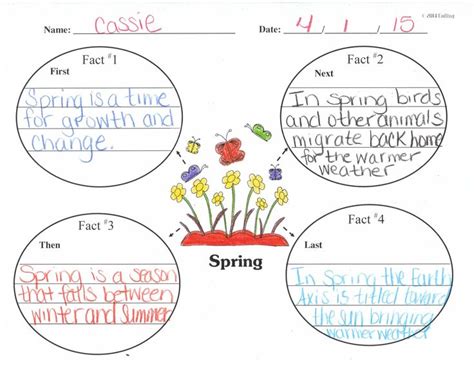 © 2014 Cutting
Name: Cassie Date: 4 / 1 / 15
Fact #1
First
Spring is a time
for growth and
change.
Fact #2
Next
In Spring birds
and other animals
migrate back home
for the warmer
weather
Fact #3
Then
Spring is a season
that falls between
winter and summer
Spring
Fact #4
Last
In Spring the Earth
Axis is titled toward
the sun bringing
warmer weather